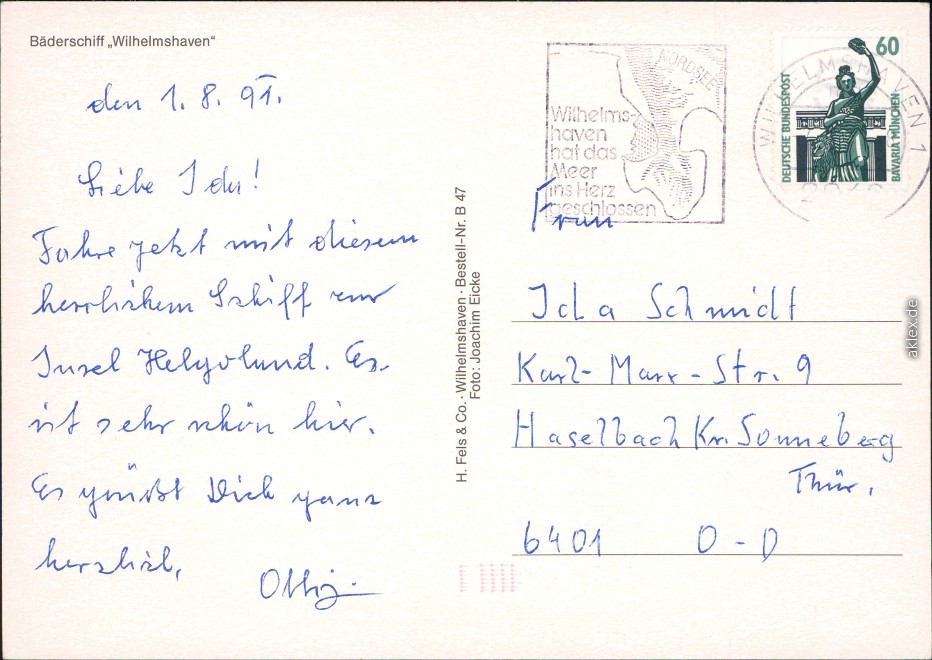 Bäderschiff „Wilhelmshaven“
den 1. 8. 91.
Liebe Ida!
Fahre jetzt mit diesem
herrlichem Schiff zur
Insel Helgoland. Es
ist sehr schön hier.
Es grüßt Dich ganz
herzlich,
H. Fels & Co. · Wilhelmshaven · Bestell-Nr. B 47
Foto: Joachim Eicke
NORDSEE
Wilhelms-
haven
hat das
Meer
ins Herz
geschlossen
WILHELMSHAVEN 1
60
DEUTSCHE BUNDESPOST
BAVARIA MÜNCHEN
Frau
Ida Schmidt
Karl-Marx-Str. 9
Haselbach Kr. Sonneberg
Thür.
6401 O-D
aklex.de